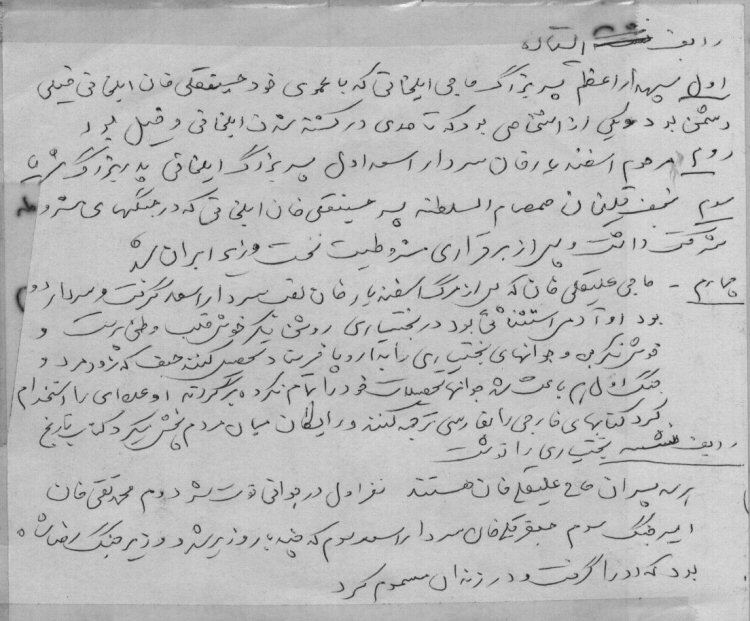 ردیف ایستاده
اول سپهدار اعظم پسر بزرگ حاجی ایلخانی که با عموی خود حسینقلی خان ایلخانی خیلی
دشمن بود و یکی از اشخاصی بود که تا حدی در کشته شدن ایلخانی دخیل بود
دوم مرحوم اسفندیار خان سردار اسعد اول پسر بزرگ ایلخانی پدر بزرگ ثریا
سوم نجفقلیخان صمصام السلطنه پسر حسینقلی خان ایلخانی که در جنگهای مشروطه
شرکت داشت و پس از برقراری مشروطیت نخست وزیر ایران شد
چهارم - حاجی علیقلی خان که پس از مرگ اسفندیار خان لقب سردار اسعد گرفت و سردار دوم
بود او آدمی استثنائی بود در بختیاری روشن فکر خوش قلب وطن پرست و
خوش فکر بود و جوانهای بختیاری را به اروپا فرستاد تحصیل کنند حیف که زود مرد و
جنگ اول هم باعث شد جوانها تحصیلات خود را تمام نکرده برگردند او عده‌ای را استخدام
کرد کتابهای خارجی را بفارسی ترجمه کنند و رایگان میان مردم پخش میکرد کتاب تاریخ
بختیاری را نوشت
ردیف نشسته
هر سه پسران حاج علیقلی خان هستند نفر اول در جوانی فوت شد دوم محمد تقی خان
امیر جنگ سوم جعفر قلی خان سردار اسعد سوم که چند بار وزیر شد و وزیر جنگ رضا شاه
بود که او را گرفت و در زندان مسموم کرد